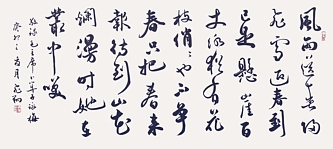 風雨送春歸
飛雪迎春到
已是懸崖百
丈冰猶有花
枝俏〻也不爭
春只把春來
報待到山花
爛漫時她在
叢中笑
敬録毛主席卜算子詠梅
癸卯 月